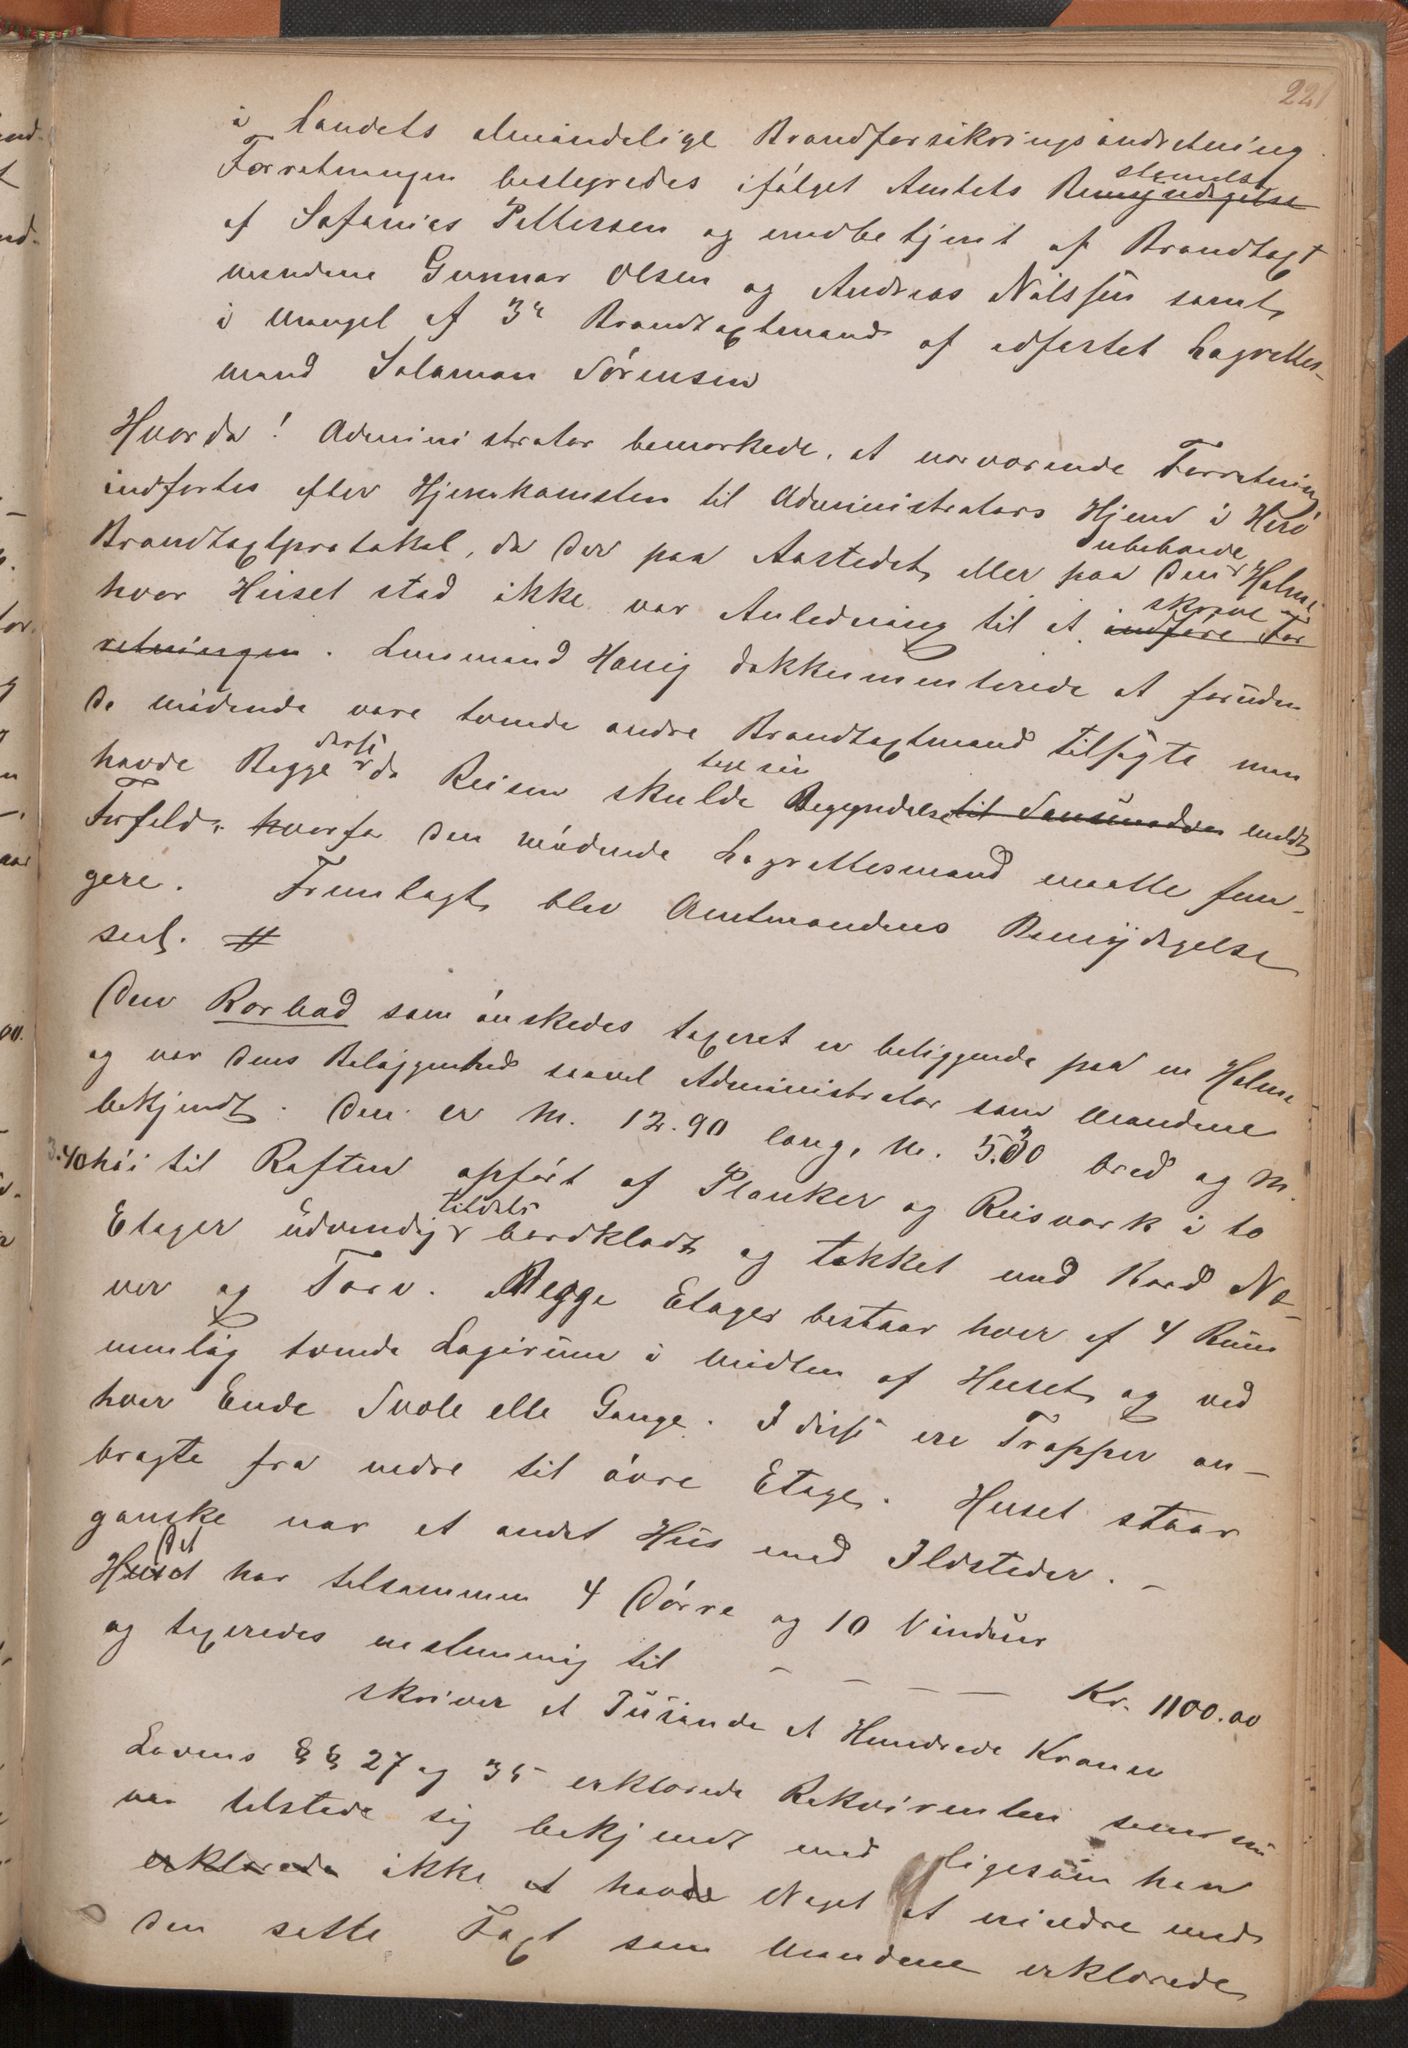 221
i Landets almindelige Brandforsikringsindretning.
Forretningen bestyredes ifølget Amtets Bemyndigelse stemelse
af Safanias Pettersen og medbetjent af Brandtaxt
mendene Gunnar Olsen og Andreas Nilssen samt
i Mangel af 3die Brandtaxtmand af edfæstet Lagrettes-
mand Salamon Sørensen
Hvorda! Administrator bemærkede, at nærværende Forretning
indførtes efter Hjemkomsten til Administrators Hjem i Herø
Brandtaxtprotokol, da der paa Aastedet eller paa den ubeboede Holme
hvor Huset stod ikke var Anledning til at skrive indføre For
retningen. Lensmand Hanig dokkumenterede at foruden
de mødende vare tvende andre Brandtaxtmænd tilsagte men
havde Begge disse da Reisen skulde tage sin Begyndelse til meldt
Forfald, hvorfor den mødende Lagrettesmand maatte fun-
gere. Fremlagt blev Amtmandens Bemydigelse
saal. #
Den Rorbod som ønskedes taxeret er beliggende paa en Holme
og var dens Beliggenhed saavel Administrator som Mændene
bekjendt. Den er M. 12.90 lang, M. 5.30 bred og M.
3.40 høi til Raften opført af Planker og Reisværk i to
Etager udvendig tildels bordklædt og tækket med Bord Næ-
ver og Torv. Begge Etager bestaar hver af 4 Rum
nemlig tvende Lagerum i Midten af Huset og ved
hver Ende Svole elle Gange. I disse ere Trapper an-
bragte fra nedre til øvre Etage. Huset staar
ganske nær et andet Hus med Ildsteder. -
Huset Det har tilsammen 4 Dørre og 10 Vinduer
og taxeredes enstemmig til - - - - Kr. 1100.00
skriver et Tusinde et Hundrede Kroner
Lovens §§ 27 og 35 erklærede Rekvirenten som nu
var tilstede sig bekjendt med ligesom han
erklærede ikke at havde Noget at erindre mod
den satte Taxt som Mændene erklærede